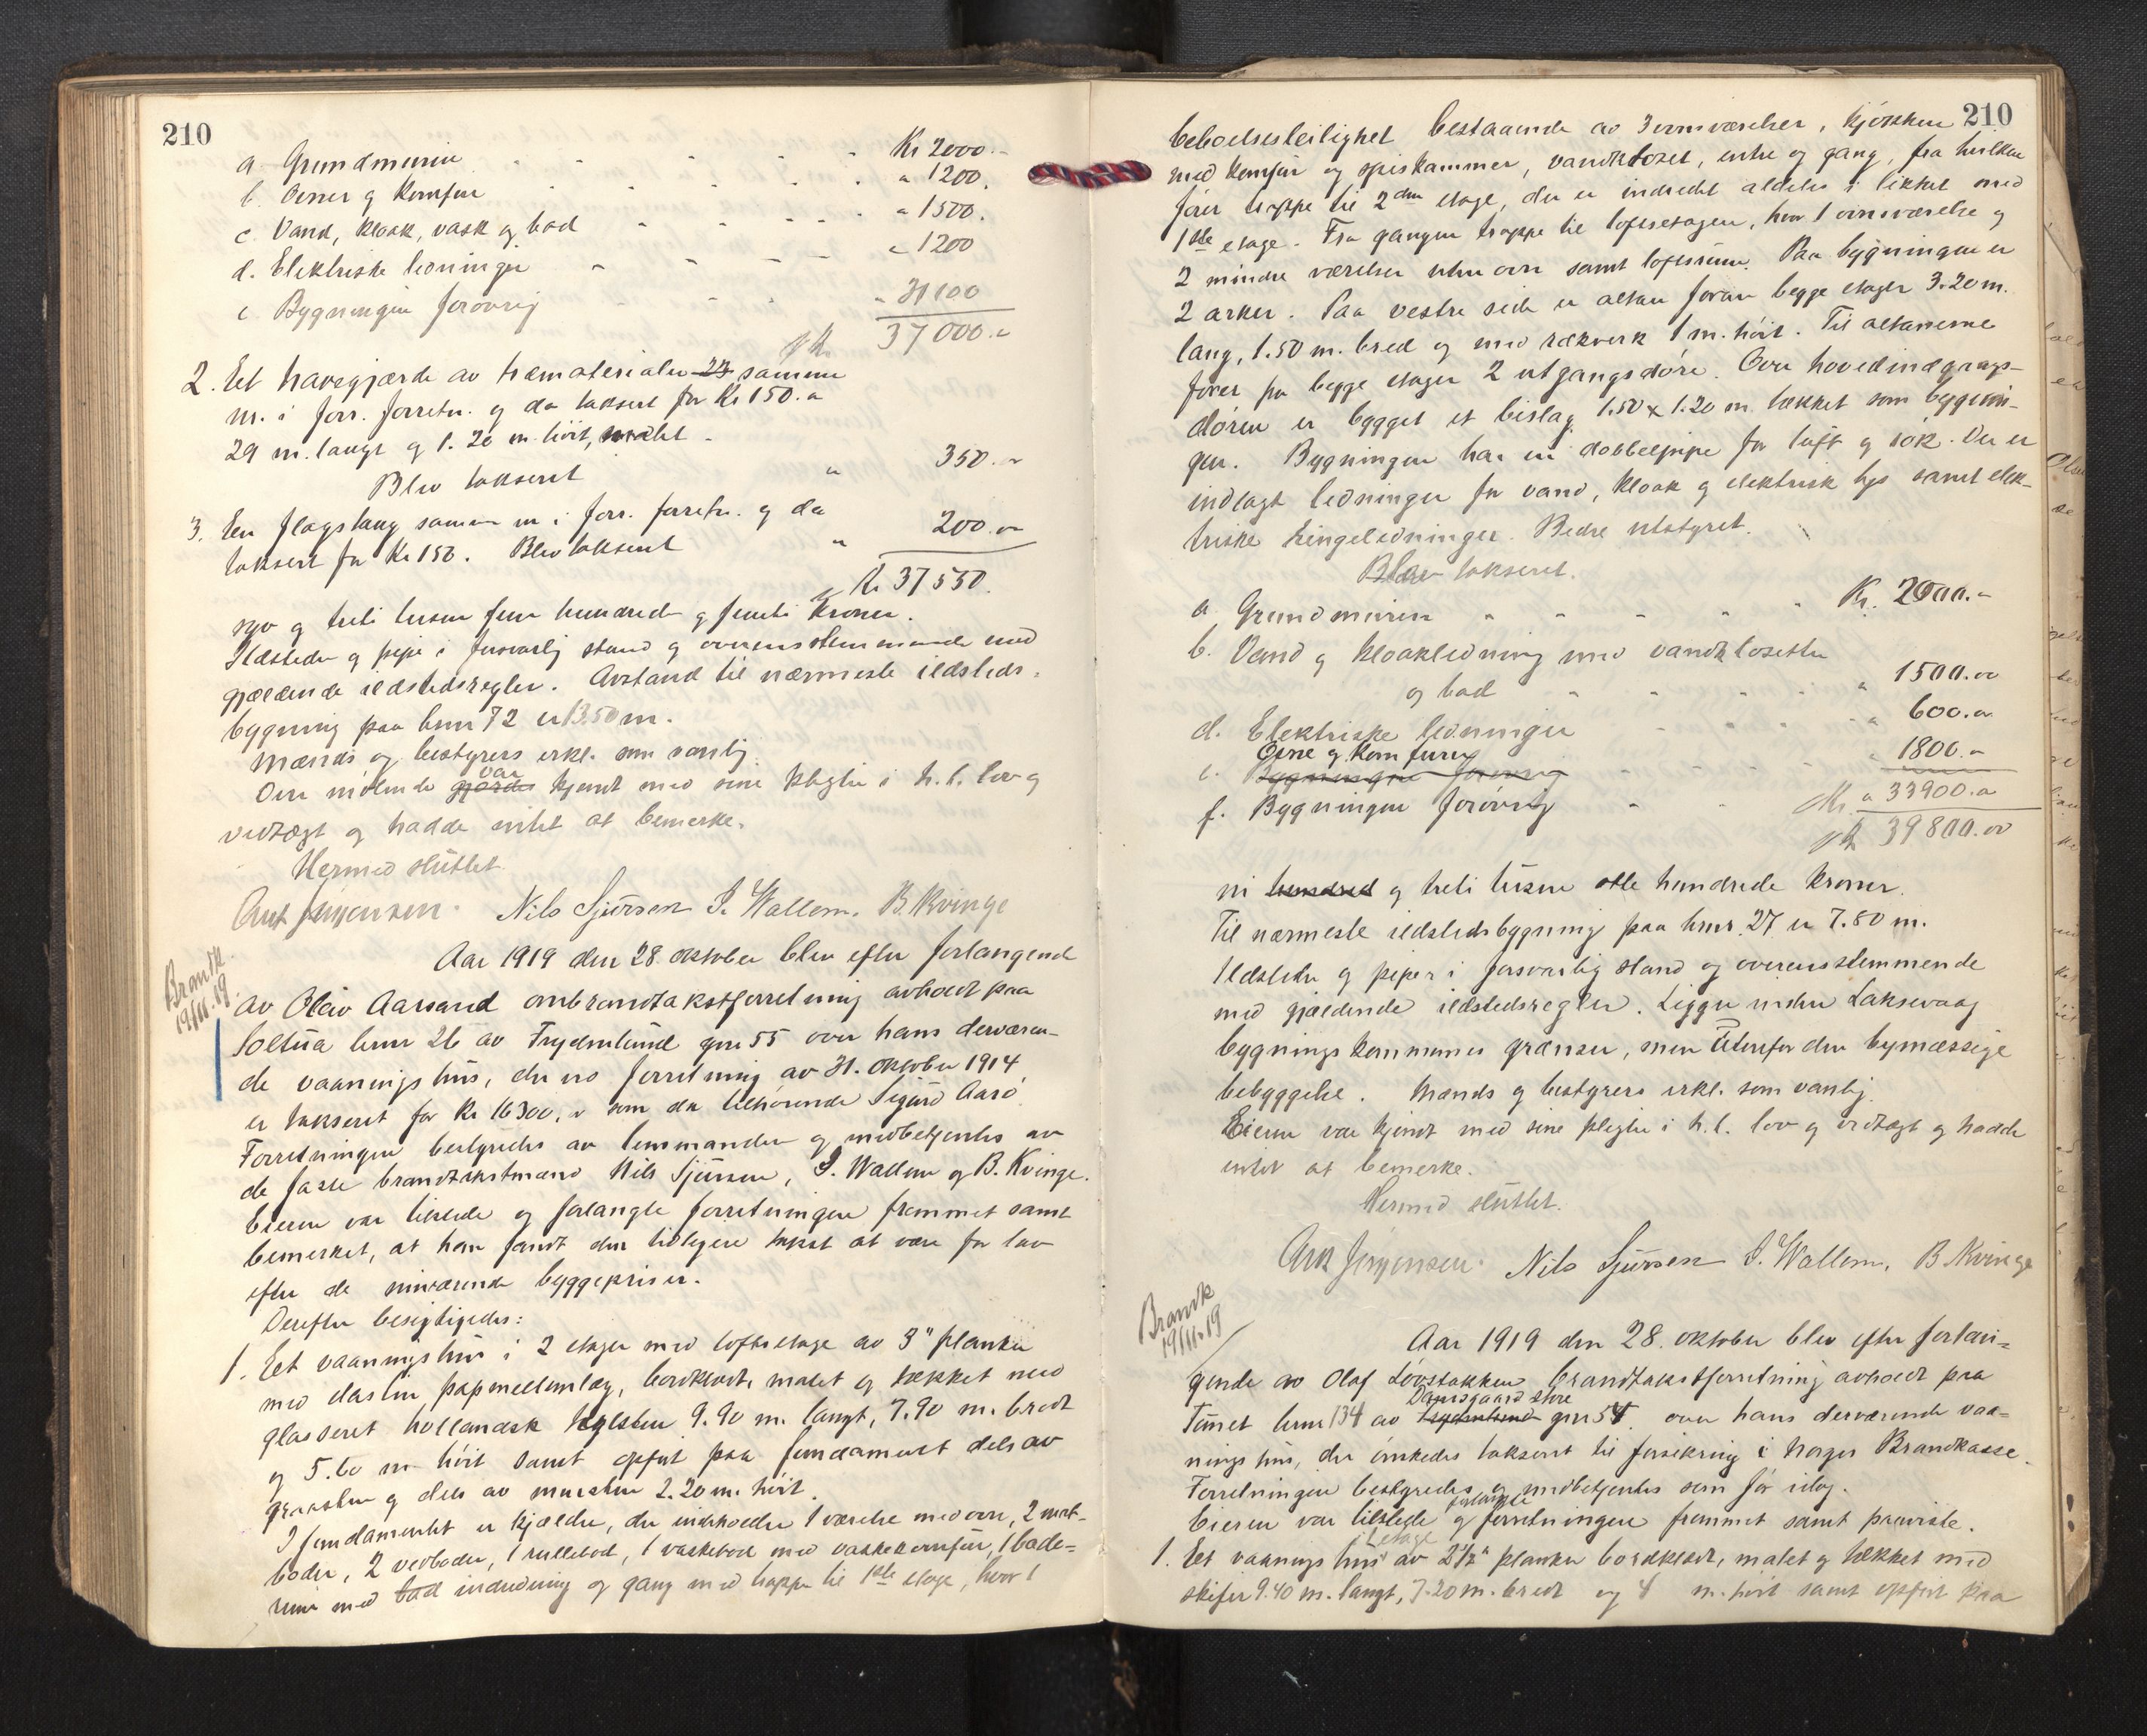 210
a. Grundmuren - - - - - Kr 2000.-
b. Ovner og Komfur - - - - - " 1200.
c. Vand, kloak, vask og bad - - - - " 1500.
d. Elektriske ledninger - - - - " 1200
e. Bygningen forøvrig - - - " 31100
37000.-
2. Et havegjærde av træmaterialer 23 samme
nr. i forr. forretn. og da taksert for Kr 150.-
29 m. langt og 1.20 m. høit, malet.
Blev taksert " 350.-
3. En flagstang samme nr. i forr. forretn. og da
taksert for Kr 150. Blev taksert " 200.-
Kr 37550.
syv og treti tusen fem hundrede og femti Kroner.
Ildsteder og pipe i forsvarlig stand og overensstemmende med
gjældende ildstedsregler. Avstand til nærmeste ildsteds-
bygning paa bnr 72 er 13.50 m.
Mænds og bestyrers erkl. som vanlig.
Den møtende gjordes var kjendt med sine pligter i h.t. lov og
vedtægt og hadde intet at bemerke.
Hermed sluttet
Ant Jørgensen. Nils Sjursen I. Wallem. B. Kvinge
Brandk.
19/11.19.
Aar 1919 den 28. oktober blev efter forlangende
av Olav Aarsand ombrandtakstforretning avholdt paa
Soltua bnr 26 av Frydenlund gnr 55 over hans derværen-
de vaaningshus, der ved forretning av 31. oktober 1914
er takseret for Kr 16300,- som da tilhørende Sigurd Aasø.
Forretningen bestyredes av lensmanden og medbetjentes av
de faste brandtakstmænd Nils Sjursen, I. Wallem og B. Kvinge.
Eieren var tilstede og forlangte forretningen fremmet samt
bemerket, at han fandt den tidligere takst at være for lav
efter de nuværende byggepriser.
Derefter besigtigedes:
1. Et vaaningshus i 2 etager med loftsetage av 3" planker
med papmellemlæg, bordklædt, malet og tækket med
glasseret hollandsk taksten 9.90 m. langt, 7.90 m. bredt
og 5.60 m høit samt opført paa fundament dels av
graasten og dels av mursten 2.20 m. høit.
I fundamentet er kjælder, der indeholder 1 værelse med ovn, 2 mat-
boder, 2 vedboder, 1 rullebod, 1 vaskebod med vaskekomfur, 1 bade-
rum med bad indredning og gang med trappe til 1ste etage, hvor 1
210
beboelsesleilighet bestaaende av 3 ovnsværelser, kjøkken
med komfur og spiskammer, vandklosset, entre og gang, fra hvilken
fører trappe til 2den etage, der er indredet aldeles i likhet med
1ste etage. Fra gangen trappe til loftsetagen, hvor 1 ovnsværelse og
2 mindre værelser uten ovn samt loftsrum. Paa bygningen er
2 arker. Paa vestre side er altan foran begge etager 3.20 m.
lang, 1.50 m. bred og med rækverk 1 m. høit. Til altanerne
fører fra begge etager 2 utgangsdøre. Over hovedindgangs-
døren er bygget et bislag 1.50 x 1.20 m. tækket som bygnin-
gen. Bygningen har en dobbeltpipe for luft og røk. Der er
indlagt ledninger for vand, kloak og elektrisk lys samt elek-
triske ringeledninger. Bedre utstyret.
Blev takseret.
a. Grundmuren - - - - - Kr. 2000.-
b. Vand og kloakledning med vandklosetter
og bad - - - - " 1500.00
d. Elektriske ledninger - - - " 600.-
e. Bygningen forøvrig Ovne og komfurer - - - " 1800.-
f. Bygningen forøvrig - - " 33900.-
39800.00
ni hundred og treti tusen otte hundrede kroner.
Til nærmeste ildstedsbygning paa bnr. 27 er 7.80 m.
Ildsteder og piper i forsvarlig stand og overensstemmende
med gjældende ildstedsregler. Ligger inden Laksevaag
bygningskommunes grænser, men utenfor den bymæssige
bebyggelse. Mænds og bestyrers erkl. som vanlig.
Eieren var kjendt med sine pligter i h.t. lov og vedtægt og hadde
intet at bemerke.
Hermed sluttet.
Ant Jørgensen. Nils Sjursen I. Wallem. B. Kvinge
Brandk
19/11.19
Aar 1919 den 28. oktober blev efter forlan-
gende av Olaf Løvstakken brandtakstforretning avholdt paa
Tunet bnr 134 av Frydenlund Damsgaard store gnr 54 over hans derværende vaa-
ningshus, der ønskedes takseret til forsikring i Norges Brandkasse.
Forretningen bestyredes og medbetjentes som før idag.
Eieren var tilstede og forlangte forretningen fremmet samt paaviste.
1. Et vaaningshus 1 etage av 2½" planker bordklædt, malet og tækket med
skifer 9.40 m. langt, 7.20 m. bredt og 4 m. høit samt opført paa